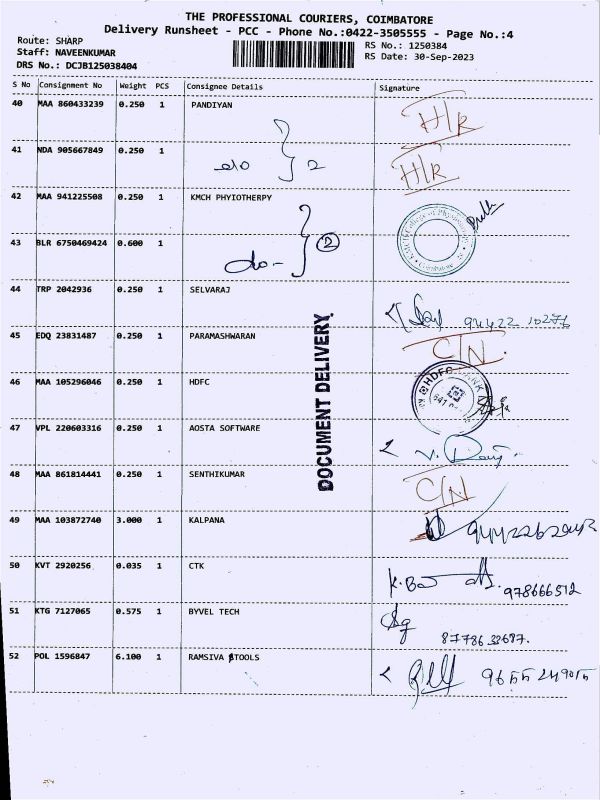 THE PROFESSIONAL COURIERS, COIMBATORE
Delivery Runsheet - PCC - Phone No.:0422-3505555 - Page No.:4
Route: SHARP
Staff: NAVEENKUMAR
DRS No.: DCJB125038404
RS No.: 1250384
RS Date: 30-Sep-2023
S No Consignment No Weight PCS Consignee Details Signature
40 MAA 860433239 0.250 1 PANDIYAN H/R
41 NDA 905667849 0.250 1 do } 2 H/R
42 MAA 941225508 0.250 1 KMCH PHYIOTHERPY
43 BLR 6750469424 0.600 1 do- } 2
44 TRP 2042936 0.250 1 SELVARAJ 94422 10276
45 EDQ 23831487 0.250 1 PARAMASHWARAN C/N.
46 MAA 105296046 0.250 1 HDFC HDFC BANK
47 VPL 220603316 0.250 1 AOSTA SOFTWARE
48 MAA 861814441 0.250 1 SENTHIKUMAR C/N
49 MAA 103872740 3.000 1 KALPANA
50 KVT 2920256 0.035 1 CTK 978666512
51 KTG 7127065 0.575 1 BYVEL TECH
52 POL 1596847 6.100 1 RAMSIVA TOOLS
DOCUMENT DELIVERY